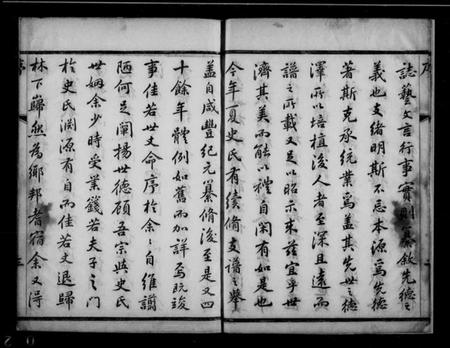 誌藝文言行事實則纂敘先德之
義也支緒明斯不忘本源焉先德
著斯克承統業焉蓋其先世之德
澤所以培植後人者至深且遠而
譜之所載又足以昭示來茲宜乎世
濟其美而能以禮自閑有如是也
今年夏史氏有續脩支譜之舉
蓋自咸豐紀元纂脩後至是又四
十餘年體例如舊而加詳焉既竣
事佳若世丈命序於余余自維譾
陋何足闡揚世德顧吾宗與史氏
世姻余少時受業錢若夫子之門
於史氏淵源有自而佳若丈退歸
林下巋然為鄉邦耆宿余又得
序
三